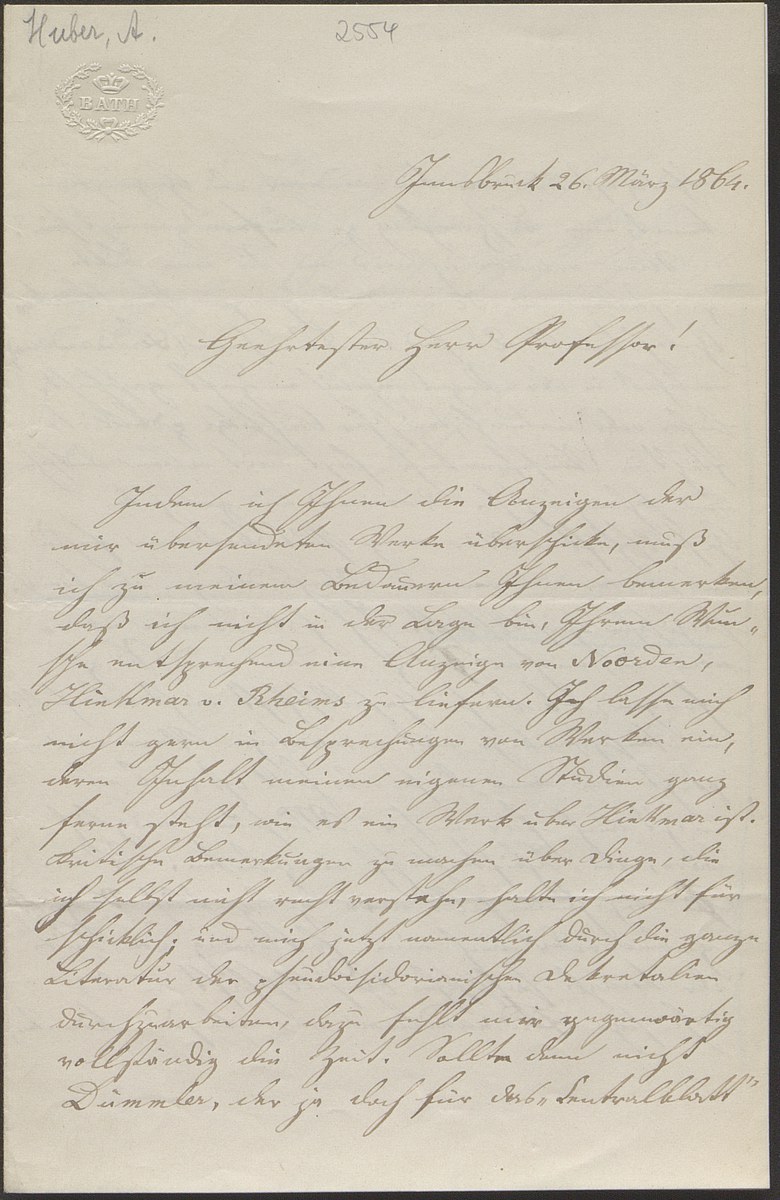 Huber, A.
2554
BATH
Innsbruck 26. März 1864.
Geehrtester Herr Professor!
Indem ich Ihnen die Anzeigen der
mir übersendeten Werke überschicke, muß
ich zu meinem Bedauern Ihnen bemerken,
daß ich nicht in der Lage bin, Ihrem Wun-
sche entsprechend eine Anzeige von Noorden,
Hinkmar v. Rheims zu liefern. Ich lasse mich
nicht gern in Besprechungen von Werken ein,
deren Inhalt meinen eigenen Studien ganz
ferne steht, wie es ein Werk über Hinkmar ist.
Kritische Bemerkungen zu machen über Dinge, die
ich selbst nicht recht verstehe, halte ich nicht für
schicklich; und mich jetzt namentlich durch die ganze
Literatur der pseudoisidorianischen Dekretalien
durchzuarbeiten, dazu fehlt mir gegenwärtig
vollständig die Zeit. Sollte denn nicht
Dümmler, der ja doch für das „Centralblatt"